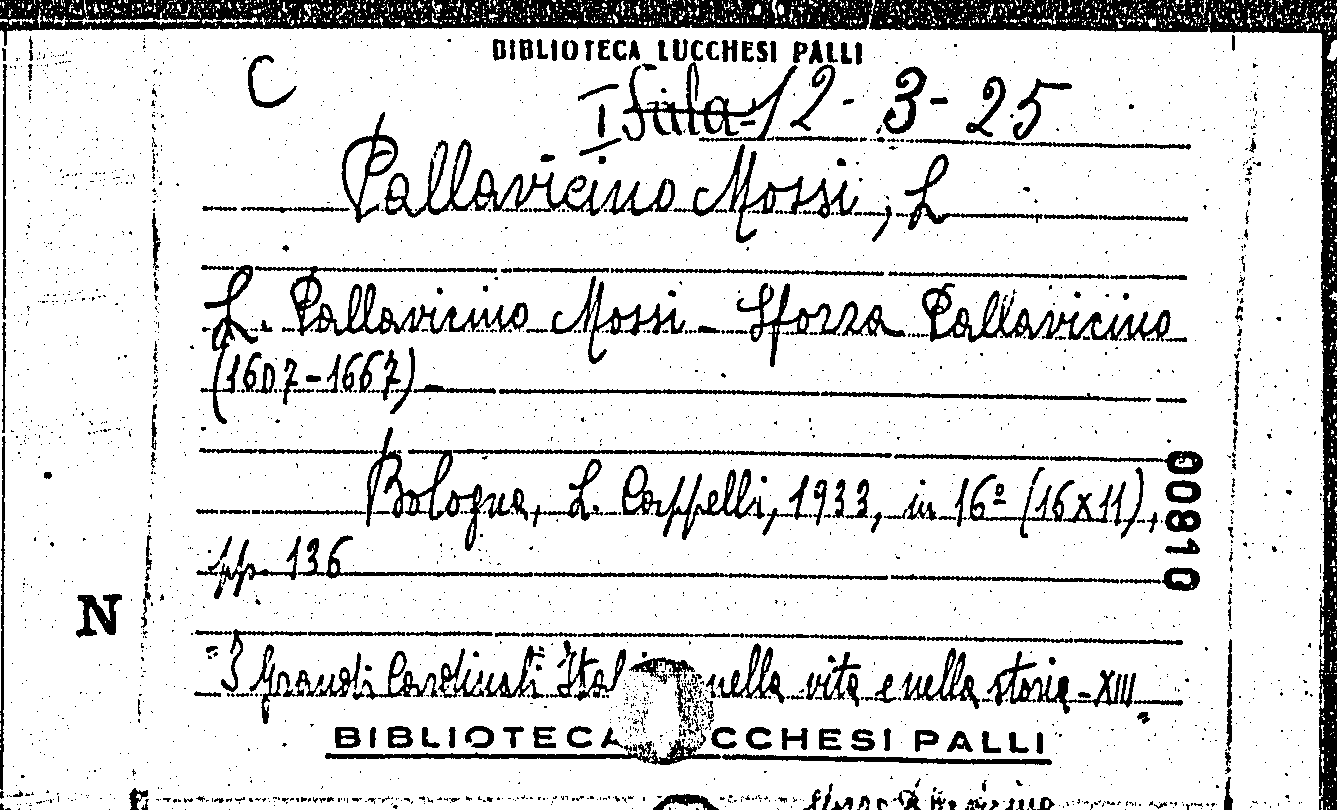 BIBLIOTECA LUCCHESI PALLI
C
I Sala 12-3-25
Pallavicino Mossi, L
L. Pallavicino Mossi - Sforza Pallavicino
(1607-1667) -
Bologna, L. Cappelli, 1933, in 16º (16x11),
pp. 136
00810
N
"I Grandi Cardinali nella vita e nella storia - XIII"
BIBLIOTECA CCHESI PALLI